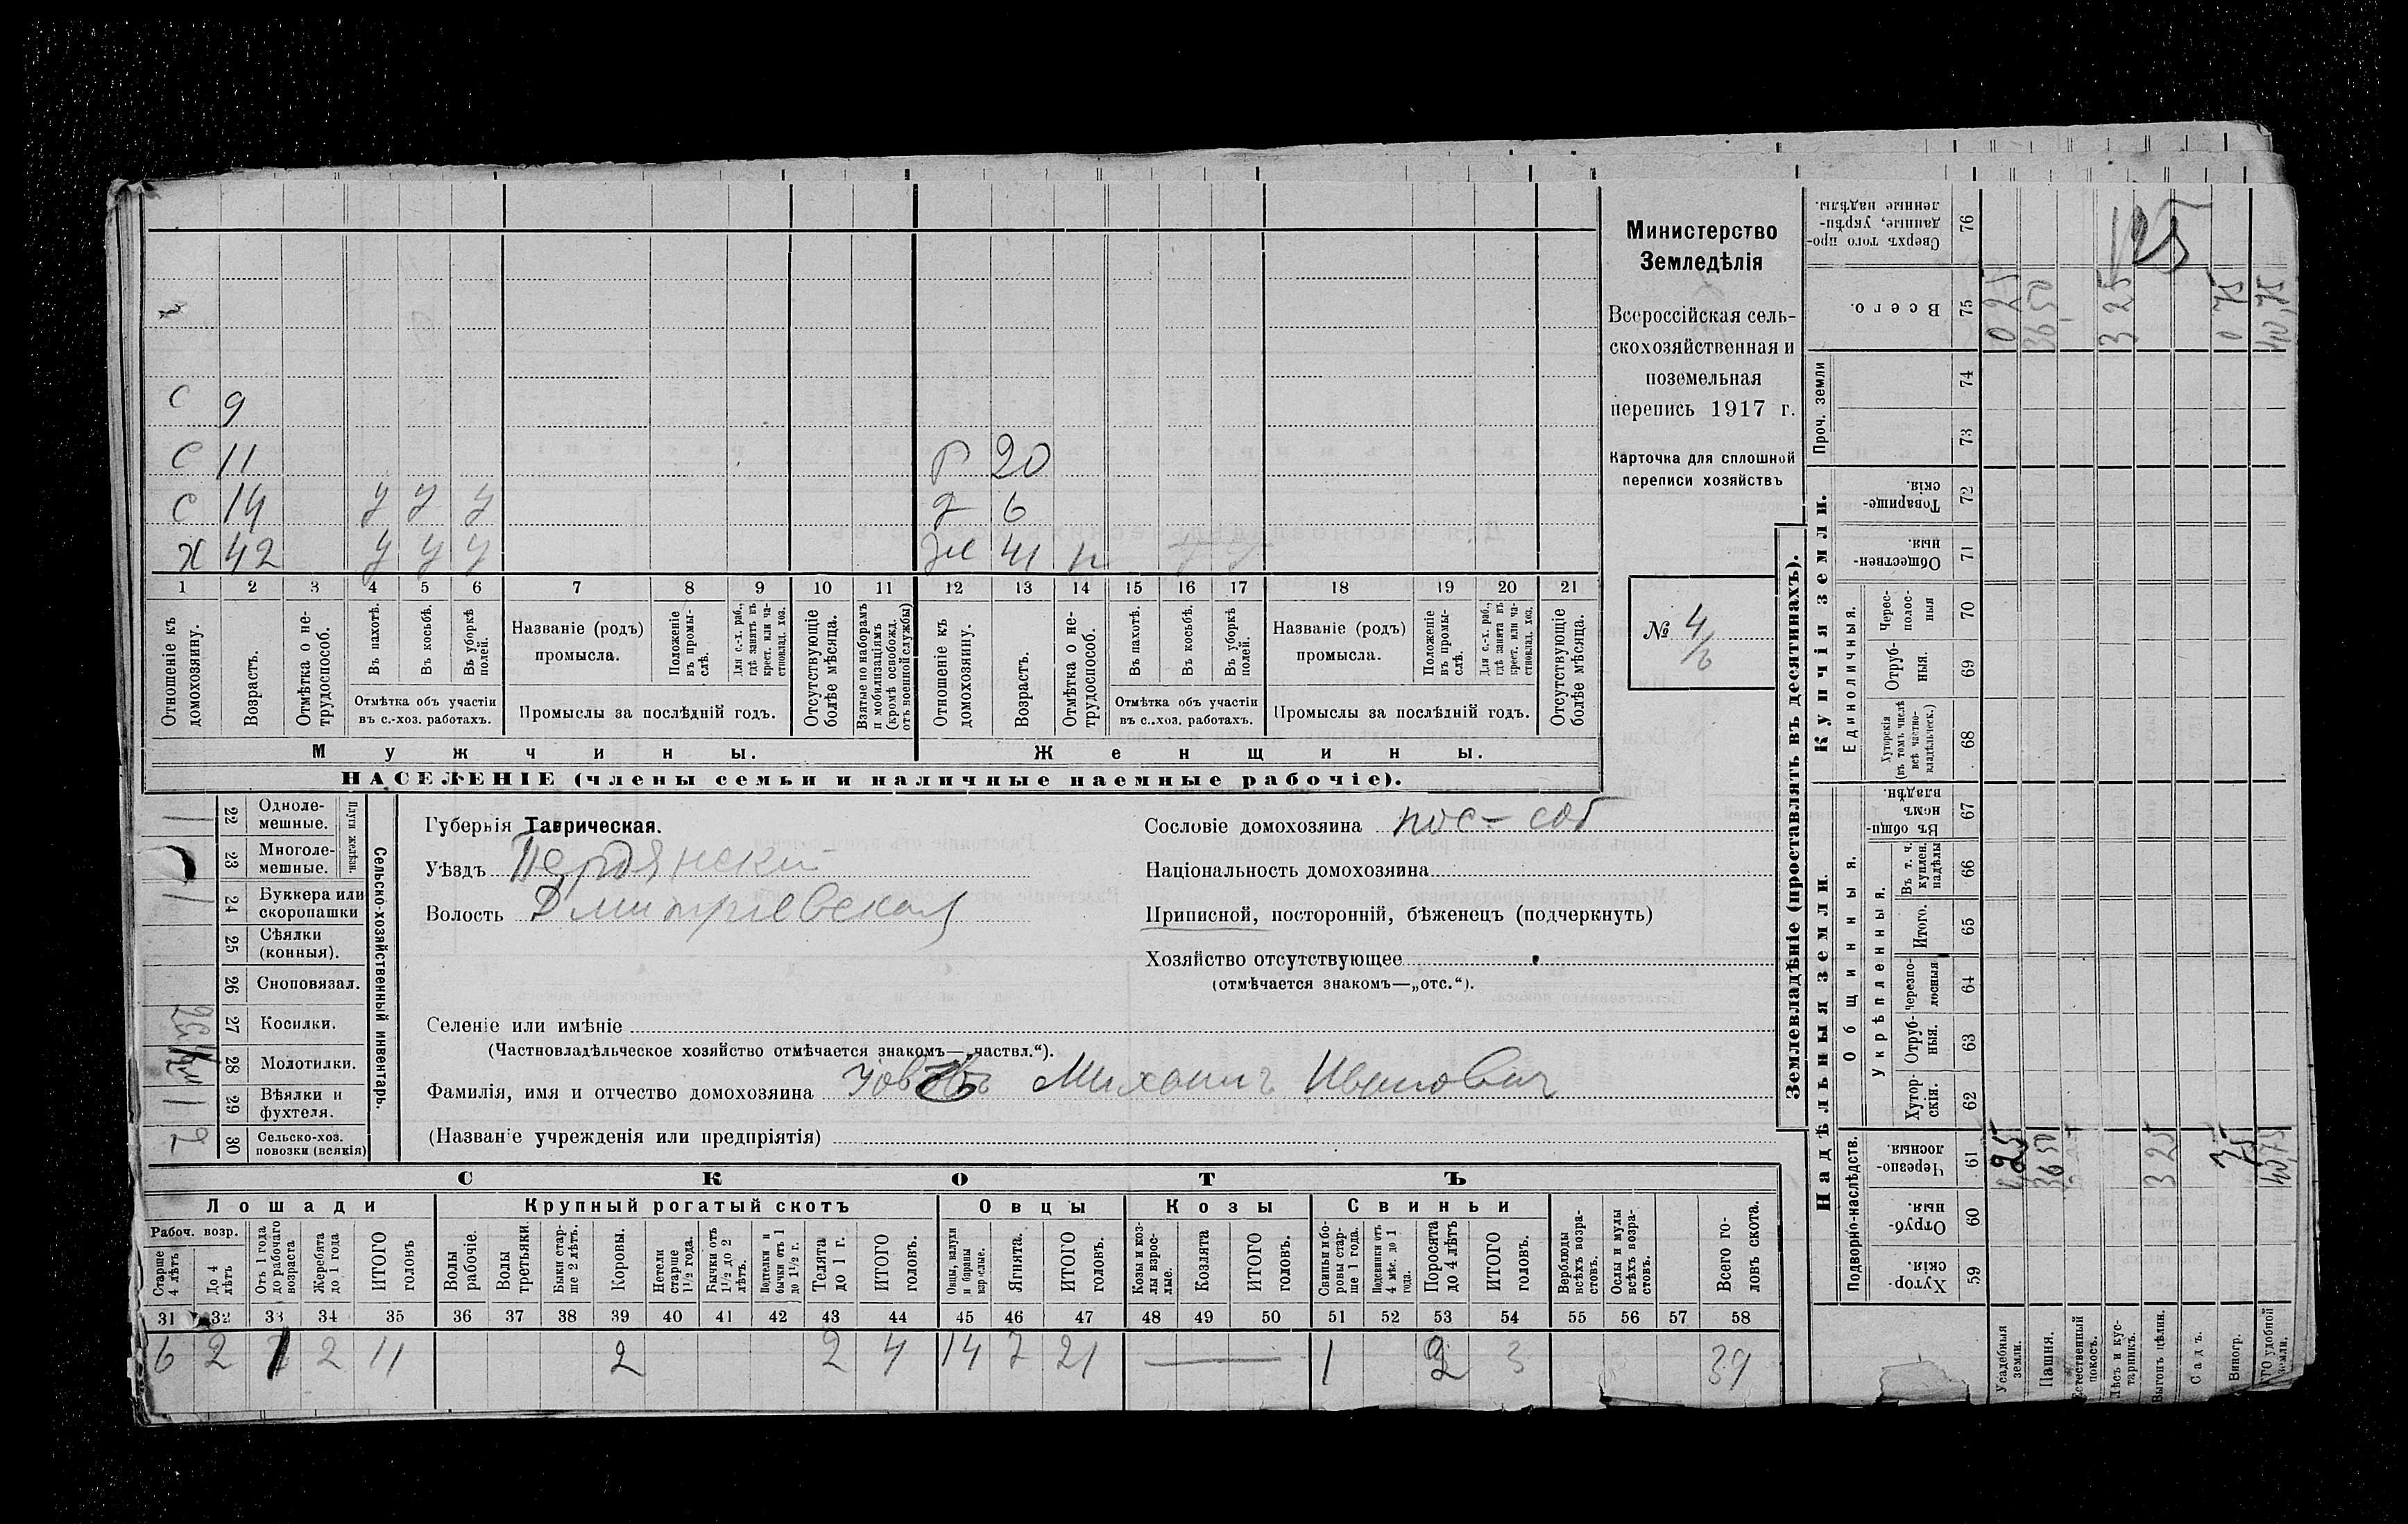 с 9
с 11 Р 20
с 14 у у у д 6
х 42 у у у ж 41 н
1 2 3 4 5 6 7 8 9 10 11 12 13 14 15 16 17 18 19 20 21
Отношеніе къ домохозяину.
Возрастъ.
Отмѣтка о нетрудоспособ.
Въ пахотѣ.
Въ косьбѣ.
Въ уборкѣ полей.
Отмѣтка объ участіи въ с.-хоз. работахъ.
Названіе (родъ) промысла.
Положеніе въ промыслѣ.
Для с.-х. раб., гдѣ занятъ въ крест. или частновлад. хоз.
Промыслы за послѣдній годъ.
Отсутствующіе болѣе мѣсяца.
Взятые по наборамъ и мобилизаціямъ (кромѣ освобожд. отъ военной службы)
Отношеніе къ домохозяину.
Возрастъ.
Отмѣтка о нетрудоспособ.
Въ пахотѣ.
Въ косьбѣ.
Въ уборкѣ полей.
Отмѣтка объ участіи въ с.-хоз. работахъ.
Названіе (родъ) промысла.
Положеніе въ промыслѣ.
Для с.-х. раб., гдѣ занята въ крест. или частновлад. хоз.
Промыслы за послѣдній годъ.
Отсутствующіе болѣе мѣсяца.
Мужчины. Женщины.
НАСЕЛЕНІЕ (члены семьи и наличные наемные рабочіе).
Министерство
Земледѣлія
Всероссійская сель-
скохозяйственная и
поземельная
перепись 1917 г.
Карточка для сплошной
переписи хозяйствъ
№ 4
Сельско-хозяйственный инвентарь.
Плуги желѣзн.
22 Одноле-
мешные.
23 Многоле-
мешные.
24 Буккера или
скоропашки
25 Сѣялки
(конныя).
26 Сноповязал.
27 Косилки.
28 Молотилки.
29 Вѣялки и
фухтеля.
30 Сельско-хоз.
повозки (всякія)
Губернія Таврическая.
Уѣздъ Бердянскій
Волость Дмитріевская
Сословіе домохозяина пос-соб
Національность домохозяина
Приписной, посторонній, бѣженецъ (подчеркнуть)
Хозяйство отсутствующее
(отмѣчается знакомъ—„отс.“).
Селеніе или имѣніе
(Частновладѣльческое хозяйство отмѣчается знакомъ—„частвл.“).
Фамилія, имя и отчество домохозяина Михаилъ Ивановичъ
(Названіе учрежденія или предпріятія)
СКОТЪ
Лошади Крупный рогатый скотъ Овцы Козы Свиньи
Рабоч. возр.
Старше 4 лѣтъ
До 4 лѣтъ
Отъ 1 года до рабочаго возраста
Жеребята до 1 года
ИТОГО головъ
Волы рабочіе.
Волы третьяки.
Быки старше 2 лѣтъ.
Коровы.
Нетели старше 1½ года.
Бычки отъ 1½ до 2 лѣтъ.
Подтелки и бычки отъ 1 до 1½ г.
Телята до 1 г.
ИТОГО головъ.
Овцы, валухи и бараны взрослые.
Ягнята.
ИТОГО головъ.
Козы и козлы взрослые.
Козлята
ИТОГО головъ.
Свиньи и боровы старше 1 года.
Подсвинки отъ 4 мѣс. до 1 года.
Поросята до 4 лѣтъ
ИТОГО головъ.
Верблюды всѣхъ возрастовъ.
Ослы и мулы всѣхъ возрастовъ.
Всего головъ скота.
31 32 33 34 35 36 37 38 39 40 41 42 43 44 45 46 47 48 49 50 51 52 53 54 55 56 57 58
6 2 1 2 11 2 2 4 14 7 21 — 1 2 3 39
Землевладѣніе (проставлять въ десятинахъ).
Надѣльныя земли.
Купчія земли.
Проч. земли
Подворно-наслѣдств.
Общинныя.
Укрѣпленныя.
Единоличныя.
Хуторскія. 59
Отрубныя. 60
Черезполосныя 61
Хуторскія. 62
Отрубныя. 63
Черезполосныя 64
Итого. 65
Въ т. ч. куплен. надѣлы 66
Въ общинномъ владѣн. 67
Хуторскія (въ томъ числѣ всѣ частновладѣльческ.) 68
Отрубныя. 69
Чересполосныя 70
Общественныя. 71
Товарищескія. 72
73
74
Всего. 75
Сверхъ того проданные, укрѣпленные надѣлы. 76
125
Усадебная земли. 0 25
Пашня. 36 50 36 50
Естественный покосъ.
Лѣсъ и кустарникъ.
Выгонъ цѣлин. 3 25 3 25
Садъ.
Виногр. 75 0 75
ИТОГО удобной земли. 40,75 40,75